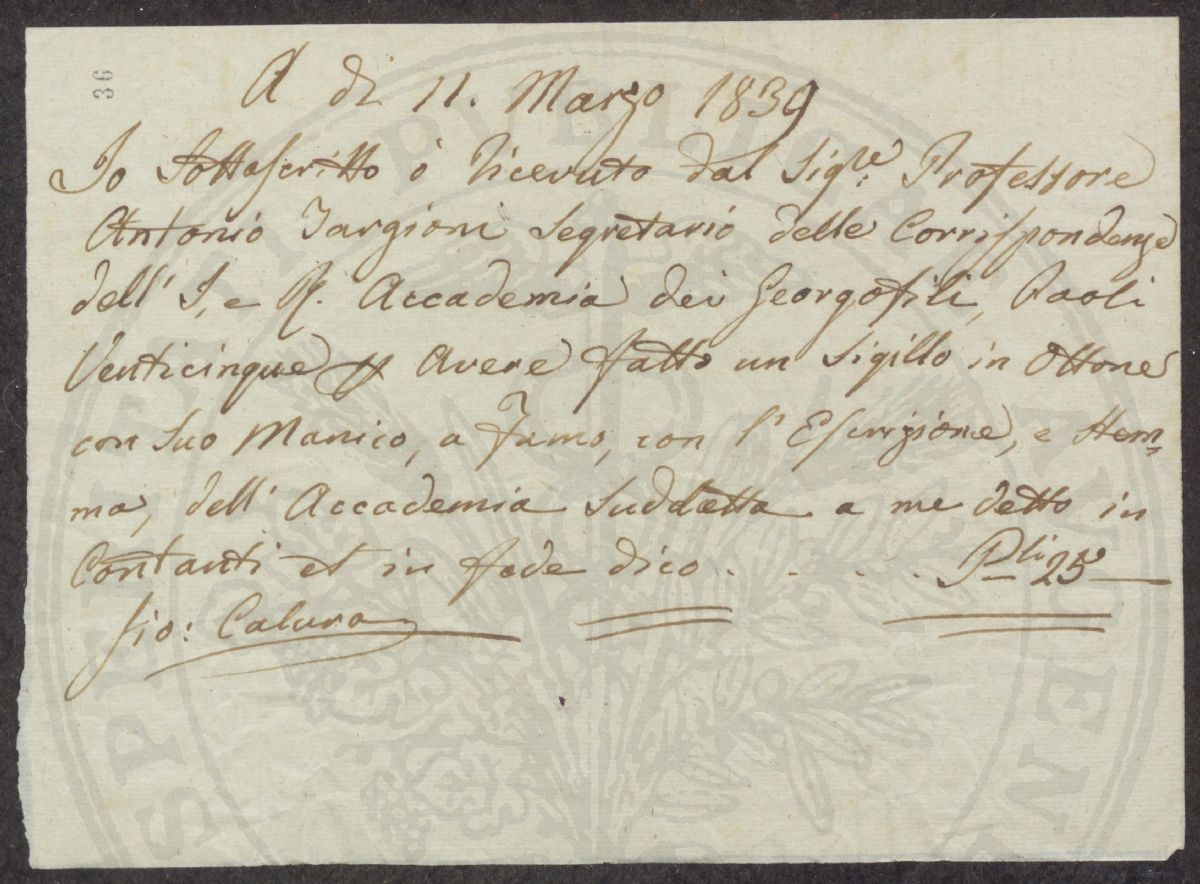 36
A dì 11. Marzo 1839
Io Sottascritto ò Riceuuto dal Sig.re Professore
Antonio Targioni Segretario delle Corrispondenze
dell' I, e R. Accademia dei Georgofili, Paoli
Venticinque p Avere fatto un Sigillo in Ottone
con Suo Manico, a Fumo, con l' Escrizione, e Stem=
ma, dell' Accademia Suddetta a me detto in
Contanti et in fede dico . . . . . P.li 25
Gio: Calura
PROSPERITATI PUBLICAE AUGENDAE